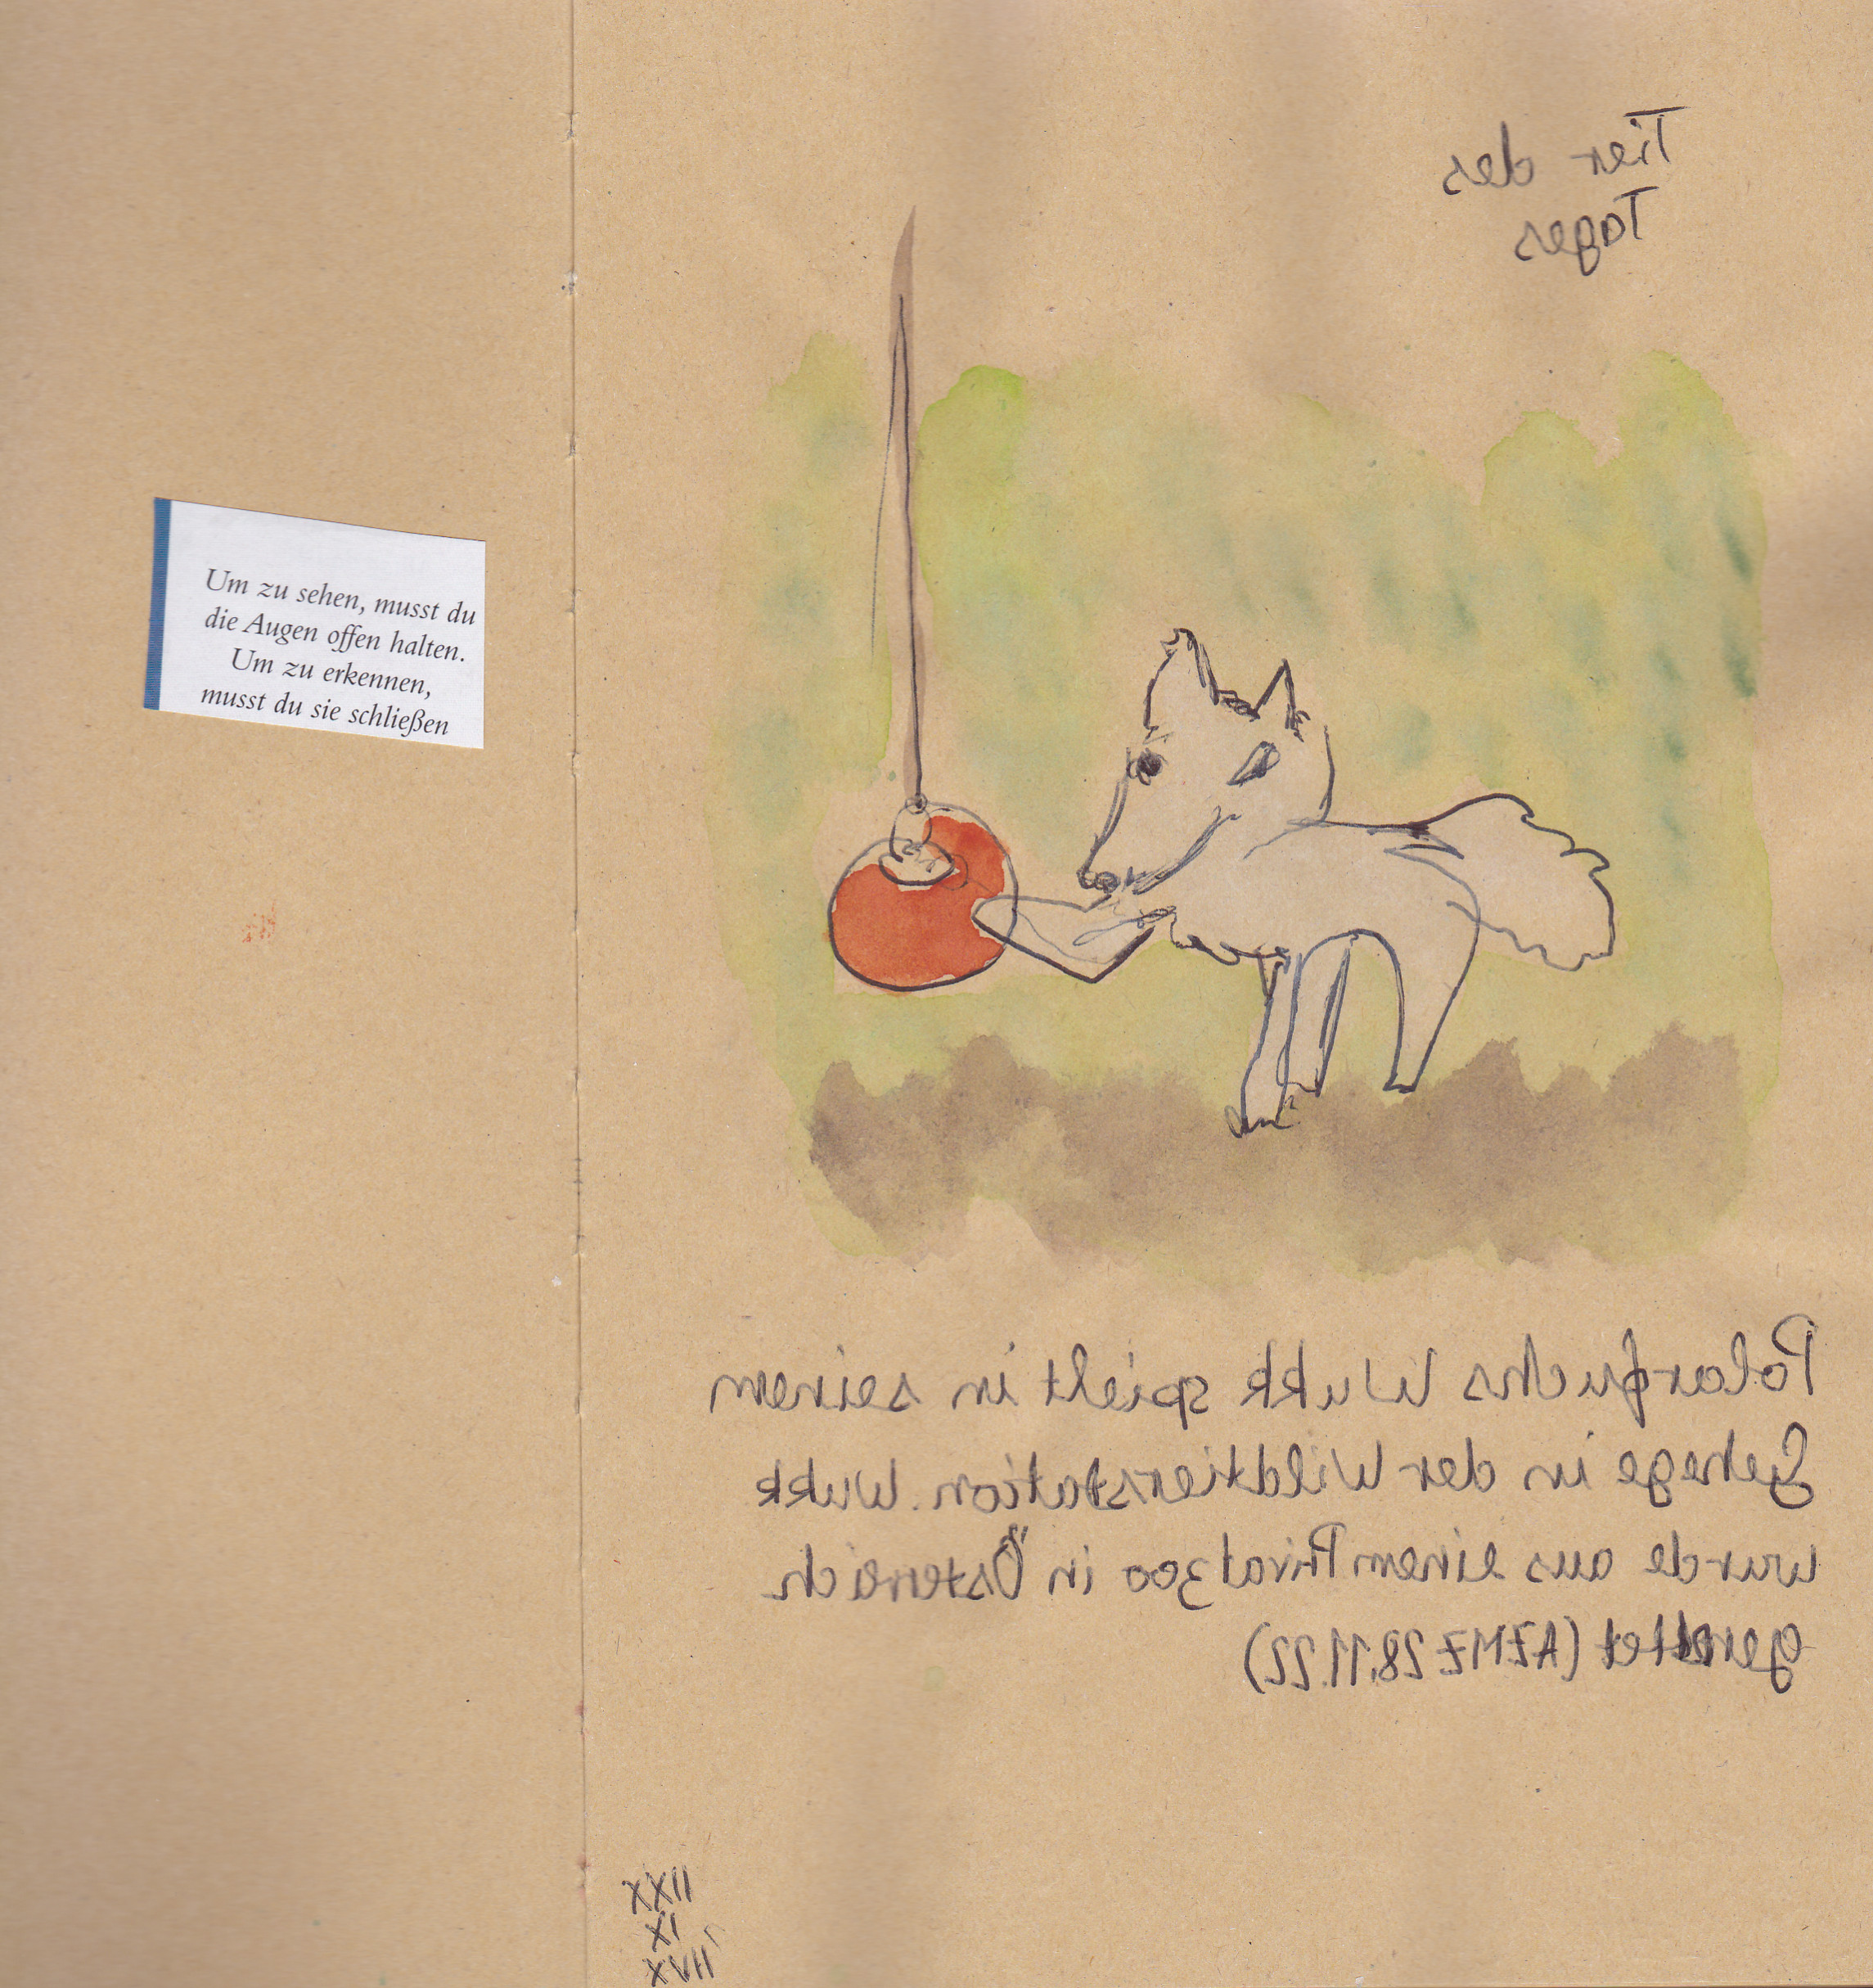 Um zu sehen, musst du
die Augen offen halten.
Um zu erkennen,
musst du sie schließen
Tier des
Tages
Polarfuchs Wukk spielt in seinem
Gehege in der Wildtierstation. Wukk
wurde aus einem Privatzoo in Österreich
gerettet (AZMZ 28.11.22)
XXII
XI
XVII